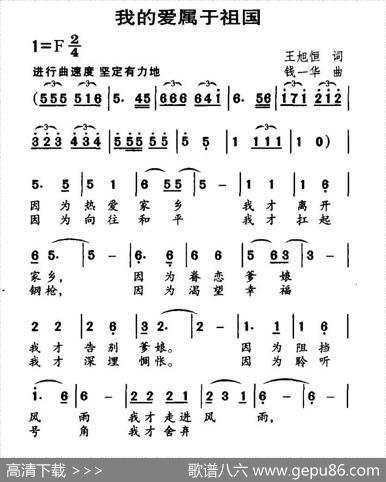 我的爱属于祖国
1=F 2/4
王旭恒 词
进行曲速度 坚定有力地
钱一华 曲
(555 516 | 5. 45 | 666 641 | 6. 56 | 171 212 |
323 434 | 555 55 | 5 5 | 1 111 | 1 0) |
5. 5 | 5 1 | 6 55 | 5 - | 1 1 | 1 6 |
因为热爱家乡 我才离开
因为向往和平 我才扛起
6 5. | 5 - | 6. 6 | 6 2 | 5 63 | 3 - |
家乡, 因为眷恋爹娘
钢枪, 因为渴望幸福
2 2 | 2 6 | 3 2. | 2 - | 1. 1 | 1 5 |
我才告别爹娘。 因为阻挡
我才深埋惆怅。 因为聆听
1. 6 | 6 - | 2 2 2 1 | 2 2 | 6 - | 6 - |
风雨我才走进风雨,
号角我才舍弃
高清下载 >>> 歌谱八六 www.gepu86.com